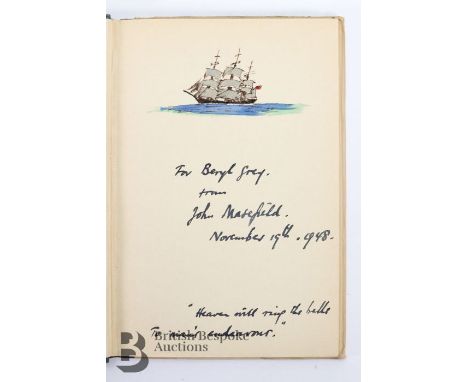 For Beryl Grey.
from
John Masefield.
November 19th. 1948.
"Heaven will ring the bells
To men's endeavour."
British Bespoke
Auctions